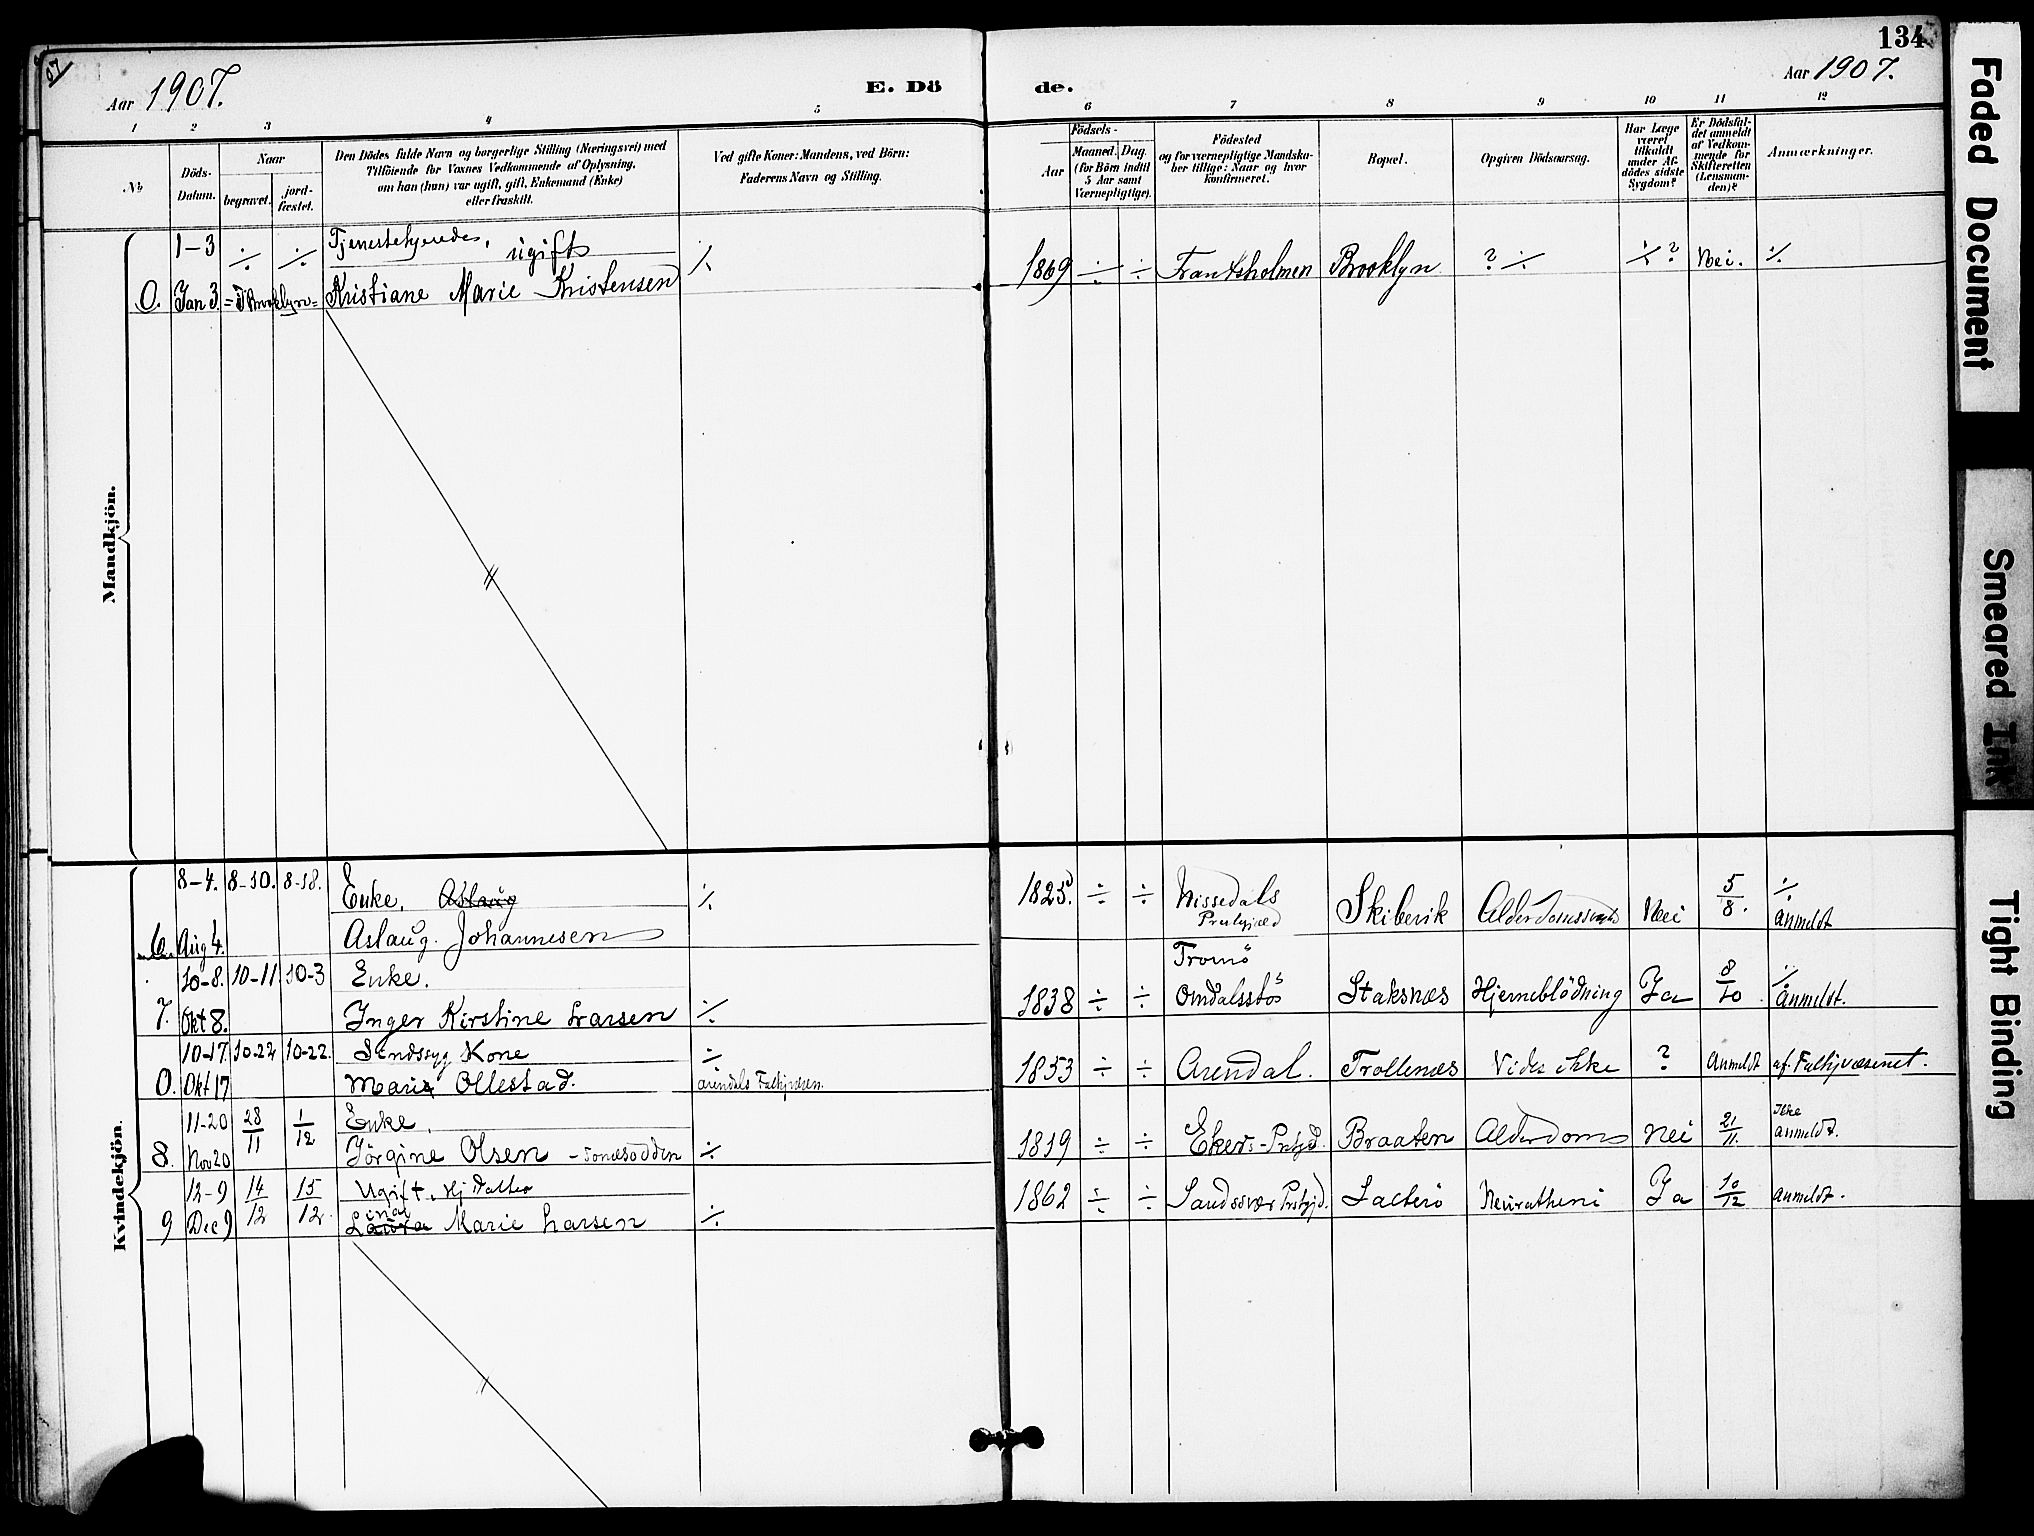 134
Aar 1907.
E. Dö
de.
Aar 1907.
1 2 3 4 5 6 7 8 9 10 11 12
№
Döds-Datum.
Naar
begravet.
jord-fæstet.
Den Dödes fulde Navn og borgerlige Stilling (Næringsvei) med
Tilföiende for Voxnes Vedkommende af Oplysning,
om han (hun) var ugift, gift, Enkemand (Enke)
eller fraskilt.
Ved gifte Koner: Mandens, ved Börn:
Faderens Navn og Stilling.
Födsels-
Aar
Maaned. Dag.
(for Börn indtil
5 Aar samt
Værnepligtige).
Födested
og for værnepligtige Mandska-
ber tillige: Naar og hvor
konfirmeret.
Bopæl.
Opgiven Dödsaarsag.
Har Læge
været
tilkaldt
under Af-
dödes sidste
Sygdom?
Er Dödsfal-
det anmeldt
af Vedkom-
mende for
Skifteretten
(Lensman-
den)?
Anmærkninger.
Mandkjön.
1-3 ÷ ÷ ugift ⁒
O. Jan 3. = I Brooklyn = Kristiane Marie Kristensen
1869 ÷ ÷ Frantsholmen Brooklyn ? ÷ ⁒ ? Nei. ⁒
Kvindekjön.
8-4. 8-10. 8-18. Enke. Aslaug ⁒
6. Aug 4. Aslaug Johannesen
1825. ÷ ÷ Nissedals Skibevik Nei 5/8. ⁒ anmeldt
10-8. 10-11 10-3 Enke.
7. Okt 8. Inger Kirstine Larsen ⁒
1838 ÷ ÷ Tromö Omdalsstös Staksnæs Hjerneblödning Ja 8/10. ⁒ anmeldt.
10-17. 10-22 10-22. Sindssyg Kone ⁒
O. Okt 17 Marie Ollestad. Arendals
1853 ÷ ÷ Arendal. Trollenæs Vides ikke ? Anmeldt af
11-20 28/11 1/12 Enke.
8. Nov 20 Jörgine Olsen - ⁒
1819 ÷ ÷ Ekers-Prstgjd. Braaten Alderdom Nei 21/11. Ikke anmeldt.
12-9 14/12 15/12. Ugift.
9 Dec 9 Laura ina Marie Larsen ⁒
1862 ÷ ÷ Sandsvær Prstgjd. Ja 10/12 anmeldt.
Faded Document
Smeared Ink
Tight Binding